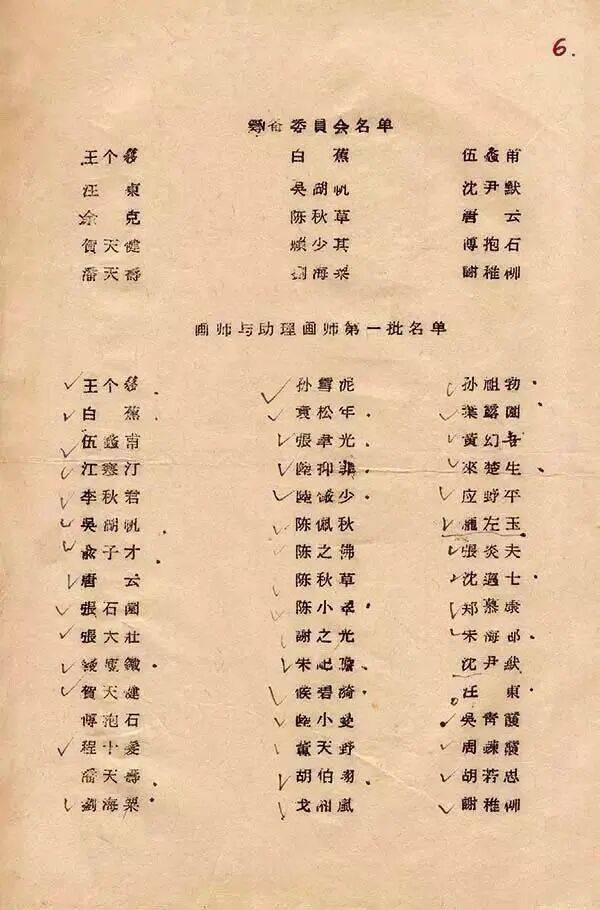 6.
筹备委員会名单
王个簃 白蕉 伍蠡甫
汪東 吳湖帆 沈尹默
余克 陈秋草 唐云
賀天健 賴少其 傅抱石
潘天壽 劉海粟 謝稚柳
画师与助理画师第一批名单
王个簃 孙雪泥 孙祖勃
白蕉 袁松年 葉露園
伍蠡甫 張聿光 黃幻吾
江寒汀 陸抑非 來楚生
李秋君 陸儼少 应野平
吳湖帆 陈佩秋 龐左玉
俞子才 陈之佛 張炎夫
唐云 陈秋草 沈邁士
張石園 陈小翠 郑慕康
張大壮 謝之光 朱梅邨
錢瘦鐵 朱屺瞻 沈尹默
賀天健 侯碧漪 汪東
傅抱石 陸小曼 吳青霞
程十髮 董天野 周鍊霞
潘天壽 胡伯翔 胡若思
劉海粟 戈湘嵐 謝稚柳